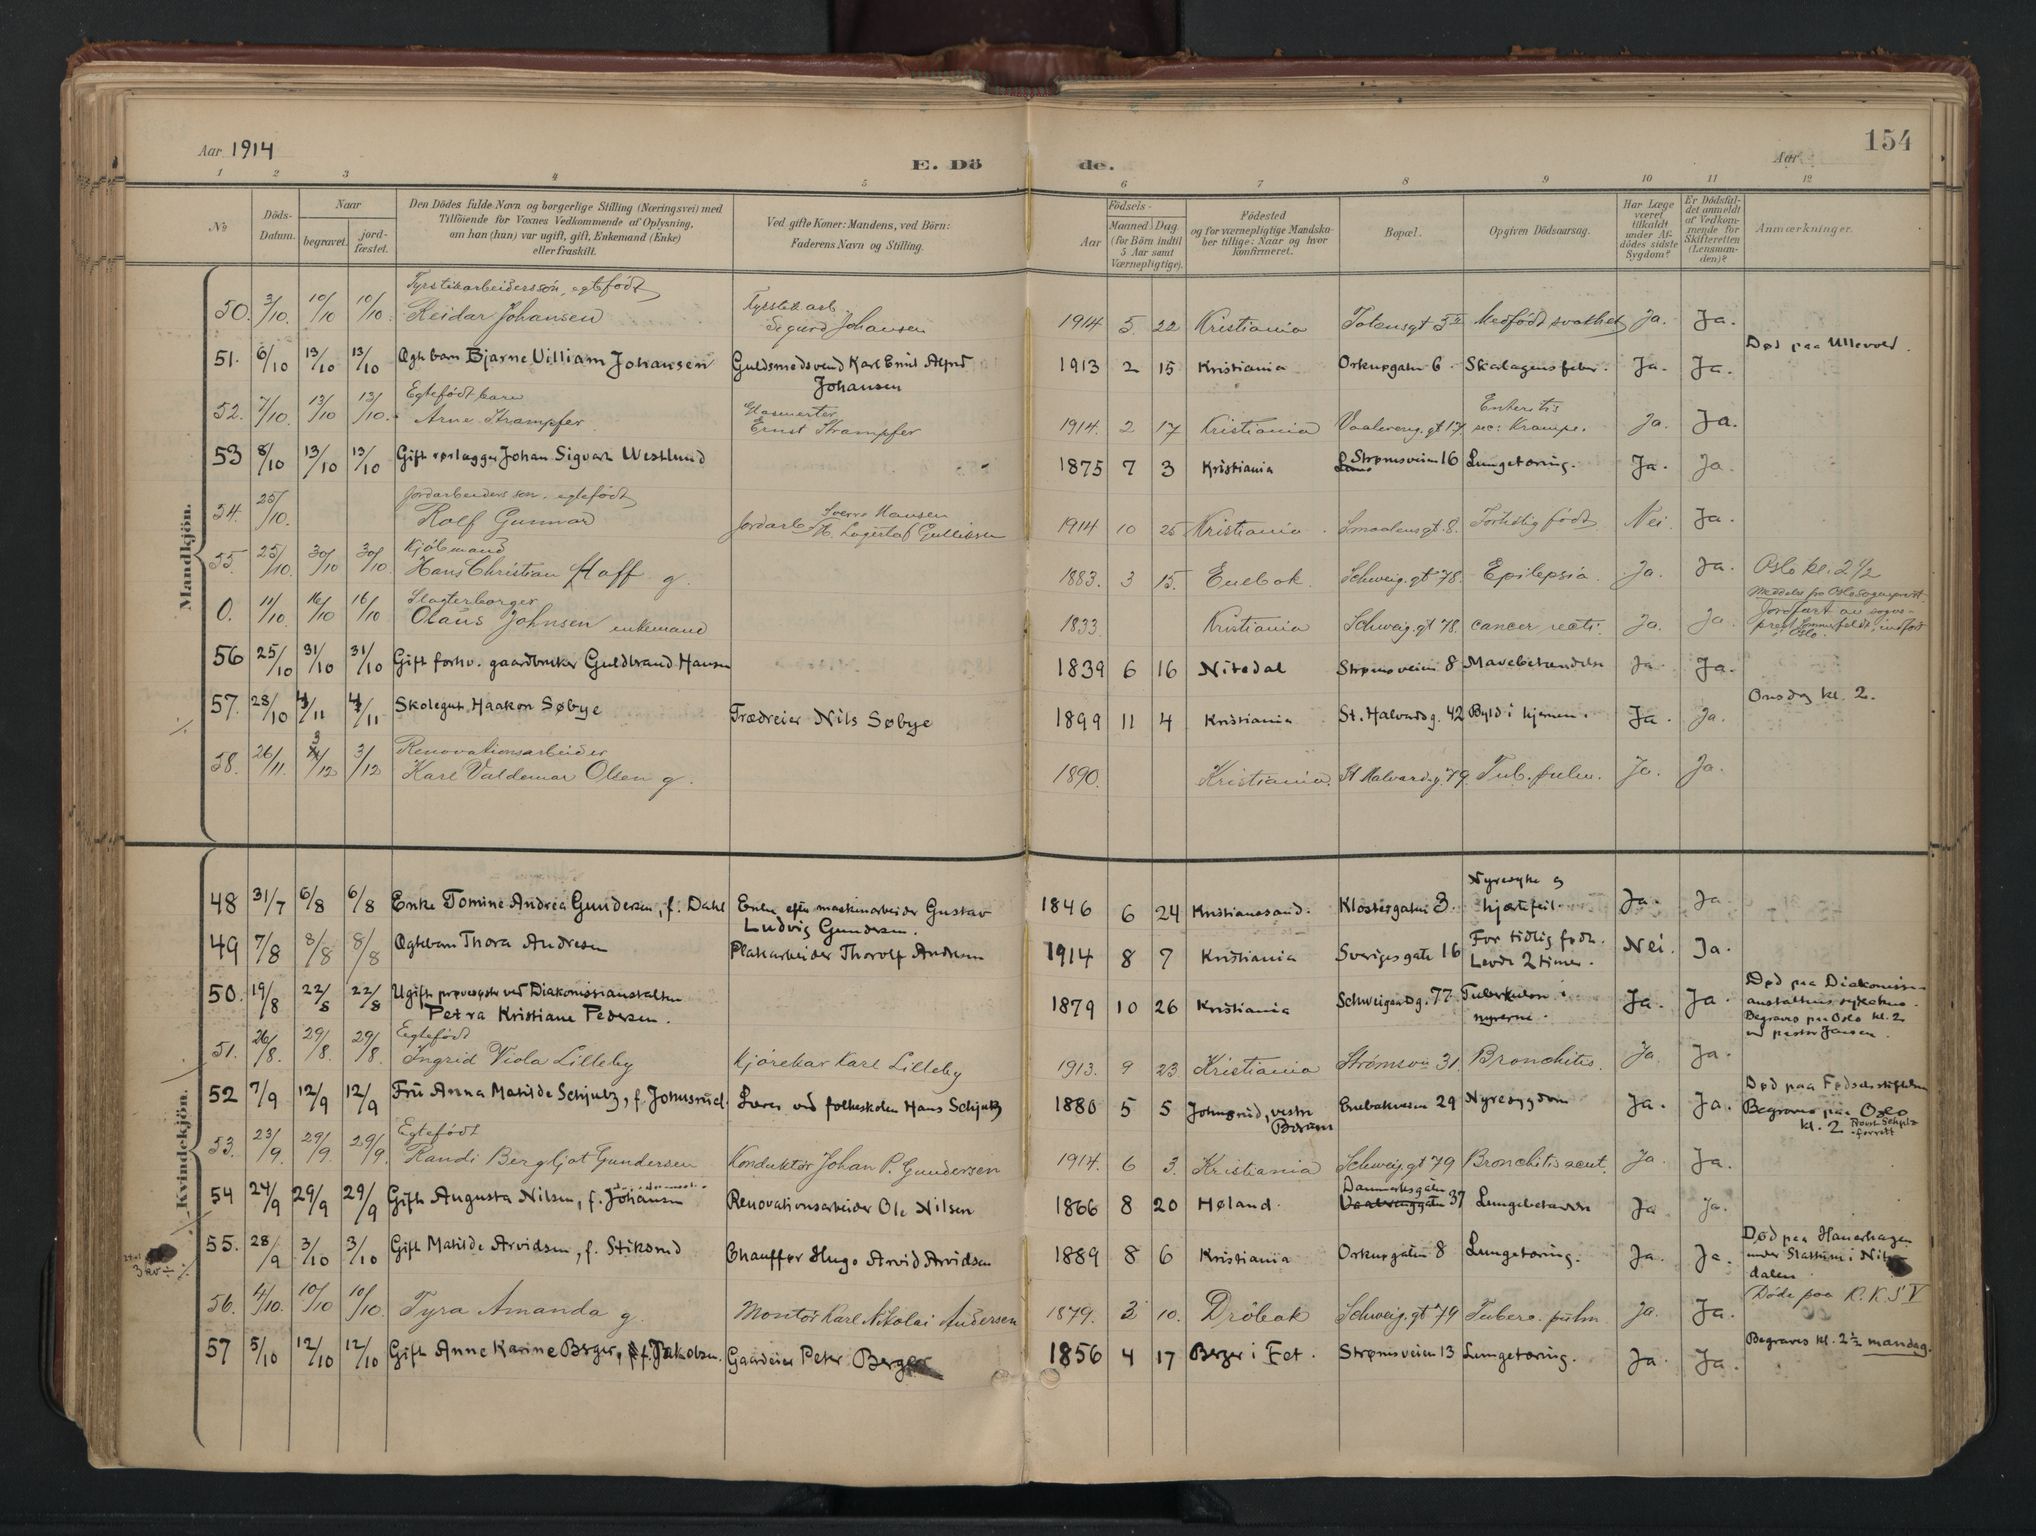 Aar 1914
E. Dö de.
Aar
154
1 2 3 4 5 6 7 8 9 10 11 12
No
Döds-Datum.
Naar
begravet.
jord-fæstet.
Den Dödes fulde Navn og borgerlige Stilling (Næringsvei) med
Tilföiende for Voxnes Vedkommende af Oplysning,
om han (hun) var ugift, gift, Enkemand (Enke)
eller fraskilt.
Ved gifte Koner: Mandens, ved Börn:
Faderens Navn og Stilling.
Födsels-
Aar
Maaned Dag
(for Börn indtil
5 Aar samt
Værnepligtige).
Födested
og for værnepligtige Mandska-
ber tillige: Naar og hvor
konfirmeret.
Bopæl.
Opgiven Dödsaarsag.
Har Læge
været
tilkaldt
under Af-
dödes sidste
Sygdom?
Er Dödsfal-
det anmeldt
af Vedkom-
mende for
Skifteretten
(Lensman-
den)?
Anmærkninger.
Mandkjön.
50. 3/10. 10/10 10/10. Fyrstikarbeidersson, egtefödt
Reidar Johansen
Sigurd Johansen 1914 5. 22 Kristiania Totensgt 5 II Medfödt svakhet Ja. Ja.
Död paa Ullevold.
51. 6/10 13/10 13/10 Ægte barn Bjarne Villiam Johansen Guldsmedsvend Karl Emil Alfred
Johansen 1913 2 15 Kristiania Orknøgaten 6. Skarlagensfeber. Ja. Ja.
52. 7/10. 13/10 13/10. Egtefödt barn
Arne Strampfer
Ernst Strampfer 1914. 2 17 Kristiania Vaalereng. gt 17 Enteritis
sec: Krampe. Ja. Ja.
53 8/10 13/10 13/10 Gift Johan Sigvart Westlund 1875 7 3 Kristiania Strømsveien 16 Lungetæring. Ja. Ja
54. 25/10. Jordarbeiders son, egtefödt
Rolf Gunnar
Jordarb. Sverre Hansen
1914 10 25 Kristiania. Smaalensgt. 8. Fortidlig födt Nei. Ja.
55. 25/10. 30/10 30/10. Kjöbmand
Hans Christian Hoff g. 1883. 3 15. Enebak. Schweig. gt 78. Epilepsia. Ja. Ja. Oslo kl. 2 1/2
0. 11/10. 16/10 16/10 Slagterborger
Olaus Johnsen enkemand 1833. Kristiania Schweig. gt 78. cancer recti. Ja. Ja
Meddelt fra Oslo sogneprest.
Jordfæst av sogne-
prest Sommerfeldt, indført
i Oslo.
56 25/10 31/10 31/10 Gift forhv. gaardbruker Guldbrand Hansen 1839 6 16 Nitedal Strømsveien 8 Mavebetændelse Ja. Ja.
57. 28/10 4/11 4/11 Skolegut Haakon Søbye Trædreier Nils Søbye 1899 11 4 Kristiania St. Halvardsg. 42 Byld i hjernen. Ja. Ja. Onsdag kl. 2.
58. 26/11. 3/12 3/12 Renovationsarbeider
Karl Valdemar Olsen g. 1890. Kristiania. St Halvardsg. 79. Tub. pulm. Ja. Ja.
Kvindekjön.
48 31/7 6/8 6/8 Enke Tomine Andrea Gundersen, f. Dahl Enke efter maskinarbeider Gustav
Ludvig Gundersen. 1846 6 24 Kristianssand. Klostergaten 3. Nyresyke og
hjertefeil. Ja. Ja
49 7/8 8/8 8/8 Ægtebarn Thora Andresen Platearbeider Thorolf Andresen 1914 8 7 Kristiania Sverigesgate 16 For tidlig født.
Levde 2 timer. Nei. Ja.
50. 19/8 22/8 22/8 Ugift prøvesøster ved Diakonisseanstalten
Petra Kristiane Pedersen. 1879 10 26 Kristiania Schweigaardsg. 77 Tuberkulose i
nyrerne. Ja. Ja.
Død paa Diakonisse-
anstaltens sykehus.
Begraves paa Oslo kl. 2
ved pastor Jansen.
51. 26/8. 29/8. 29/8. Egtefödt
Ingrid Viola Lilleby Kjörekar Karl Lilleby 1913. 9 23. Kristiania Strømsvn 31. Bronchitis. Ja. Ja.
52 7/9 12/9 12/9 Fru Anna Matilde Schjutz, f. Johnsrud. Lærer ved folkeskolen Hans Schjutz 1880 5 5 Johnsrud, vestre
Bærum Enebakveien 29 Nyresygdom Ja. Ja.
Død paa Fødselsstiftelsen
Begraves paa Oslo
kl. 2
53. 23/9. 29/9. 29/9. Egtefödt
Randi Bergljot Gundersen Konduktör Johan P. Gundersen 1914. 6 3. Kristiania Schweig. gt 79 Bronchitis acut. Ja. Ja.
54 24/9 29/9 29/9 Gift Augusta Nilsen, f. Johansen Renovationsarbeider Ole Nilsen 1866 8 20 Høland. Danmarksgaten
Vaalerenggaten 37 Lungebetændelse Ja Ja.
55. 28/9 3/10 3/10 Gift Matilde Arvidsen, f. Stiksrud Chauffør Hugo Arvid Arvidsen 1889 8 6 Kristiania Orknøgaten 8 Lungetæring. Ja. Ja.
Død paa Hauerhagen
under Slattum i Nitte-
dalen.
56. 4/10. 10/10 10/10. Tyra Amanda g. Montör Karl Nikolai Andersen 1879. 3 10. Dröbak Schweig. gt 79 Tuberc. pulm Ja. Ja. Döde paa R.K.S.V
57 5/10 12/10 12/10 Gift Anne Karine Berger, f. Jakobsen. Gaardeier Peter Berger 1856 4 17 Berger i Fet. Strømsveien 13 Lungetæring. Ja. Ja. Begraves kl. 2 1/2 mandag.